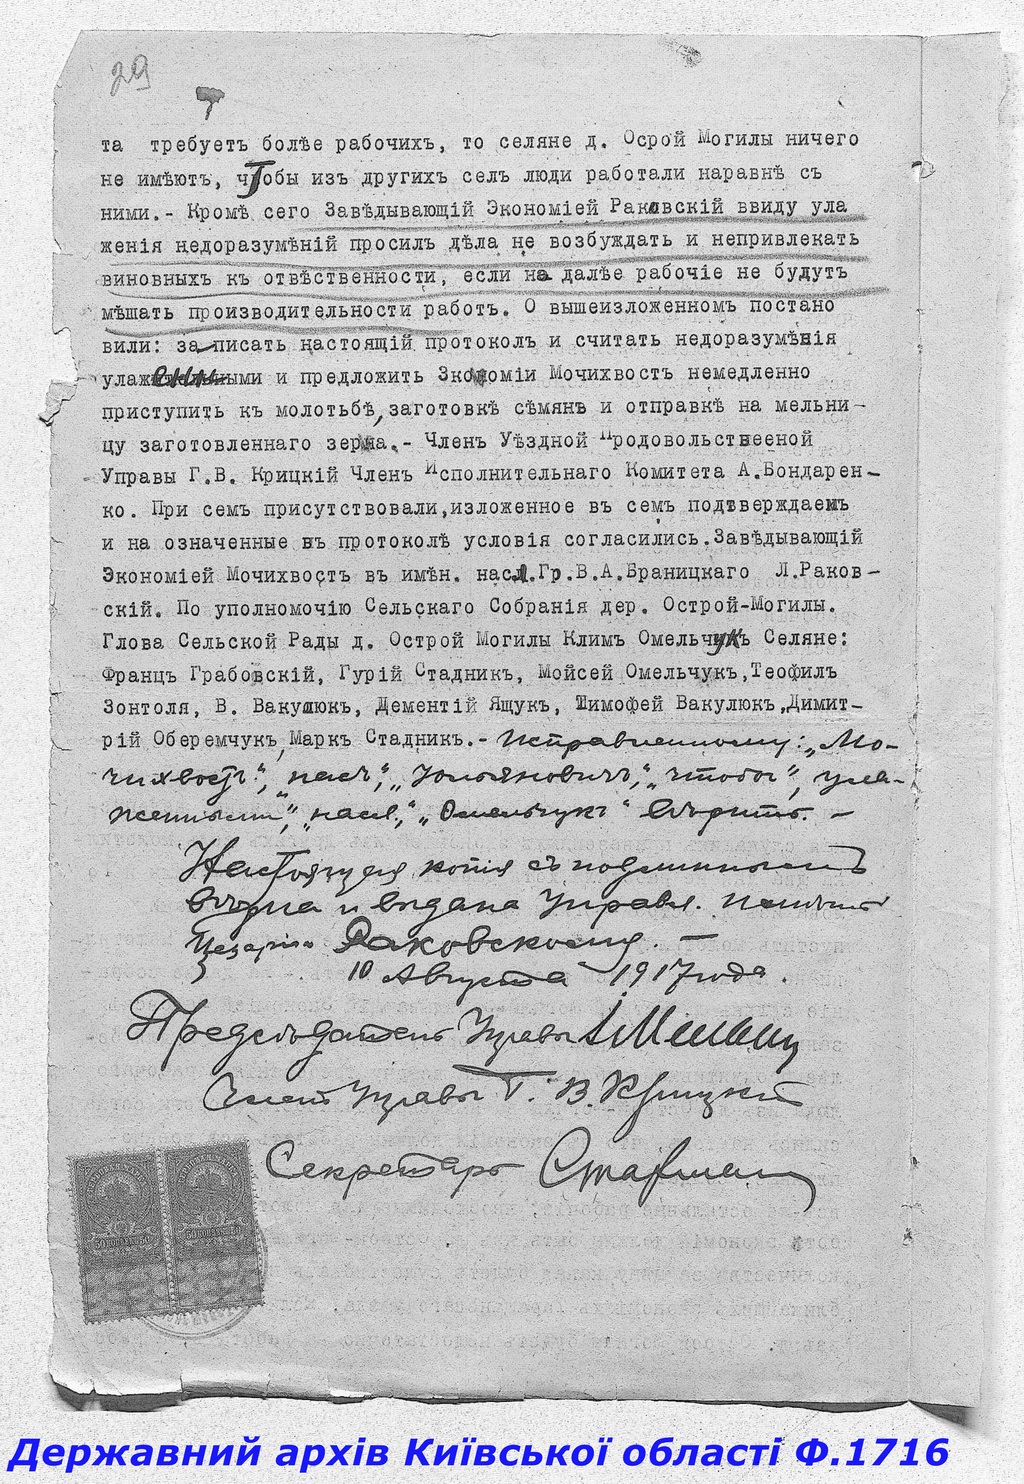 29
та требуетъ болѣе рабочихъ, то селяне д. Осрой Могилы ничего
не имѣютъ, чтобы изъ другихъ селъ люди работали наравнѣ съ
ними.- Кромѣ сего Завѣдывающій Экономіей Раковскій ввиду ула
женія недоразумѣній просилъ дѣла не возбуждать и непривлекать
виновныхъ къ отвѣственности, если на далѣе рабочіе не будутъ
мѣшать производительности работъ. О вышеизложенномъ постано
вили: записать настоящій протоколъ и считать недоразумѣнія
улаженными и предложить Экономіи Мочихвостъ немедленно
приступить къ молотьбѣ, заготовкѣ сѣмянъ и отправкѣ на мельни-
цу заготовленнаго зерна.- Членъ Уѣздной Продовольствееной
Управы Г.В. Крицкій Членъ Исполнительнаго Комитета А.Бондарен-
ко. При семъ присутствовали,изложенное въ семъ подтверждаемъ
и на означенные въ протоколѣ условія согласились.Завѣдывающій
Экономіей Мочихвостъ въ имѣн. насл.Гр.В.А.Браницкаго Л.Раков-
скій. По уполномочію Сельскаго Собранія дер. Острой-Могилы.
Глова Сельской Рады д. Острой Могилы Климъ Омельчукъ Селяне:
Францъ Грабовскій, Гурій Стадник, Мойсей Омельчук,Теофилъ
Зонтоля, В. Вакулюкъ, Дементій Ящук, Тимофей Вакулюк,Димит-
рій Оберемчукъ,Маркъ Стадникъ.- Исправленному: „Мо-
чихвостъ", „насъ", „Юльяновичъ", „чтобы", „ула-
женными", „насл.", „Омельчукъ" вѣрить. -
Настоящая копія съ подлиннымъ
вѣрна и выдана Управл. имѣніемъ
Цезарію Раковскому. -
10 Августа 1917 года.
Предсѣдатель Управы
Членъ Управы Г. В. Крицкій
Секретарь
Державний архів Київської області Ф.1716